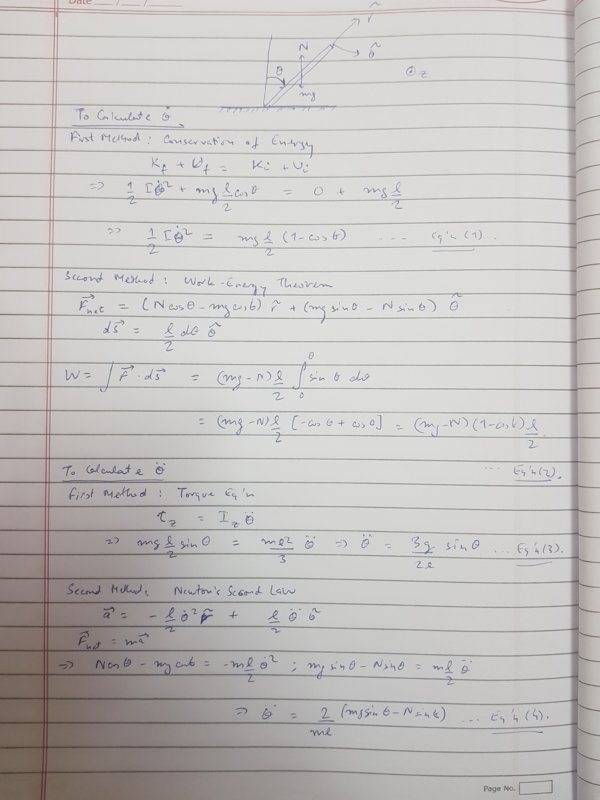 Date / /
r̂
N
θ
θ̂
⊙ z
mg
To Calculate θ̇
First Method: Conservation of Energy
K_f + U_f = K_i + U_i
⇒ 1/2 I θ̇² + mg l/2 cosθ = 0 + mg l/2
⇒ 1/2 I θ̇² = mg l/2 (1-cosθ) ... Eq'n (1).
Second Method: Work-Energy Theorem
F⃗_net = (N cosθ - mg cosθ) r̂ + (mg sinθ - N sinθ) θ̂
ds⃗ = l/2 dθ θ̂
W = ∫ F⃗ · ds⃗ = (mg-N) l/2 ∫₀^θ sin θ dθ
= (mg-N) l/2 [-cos θ + cos 0] = (mg-N)(1-cosθ) l/2.
... Eq'n (2).
To Calculate θ̈
First Method: Torque Eq'n
τ_z = I_z θ̈
⇒ mg l/2 sinθ = ml²/3 θ̈ ⇒ θ̈ = 3g/2l sinθ ... Eq'n (3).
Second Method: Newton's Second Law
a⃗ = - l/2 θ̇² r̂ + l/2 θ̈ θ̂
F⃗_net = ma⃗
⇒ N cosθ - mg cosθ = -m l/2 θ̇² ; mg sinθ - N sinθ = m l/2 θ̈
⇒ θ̈ = 2/ml (mg sin θ - N sin θ) ... Eq'n (4).
Page No.